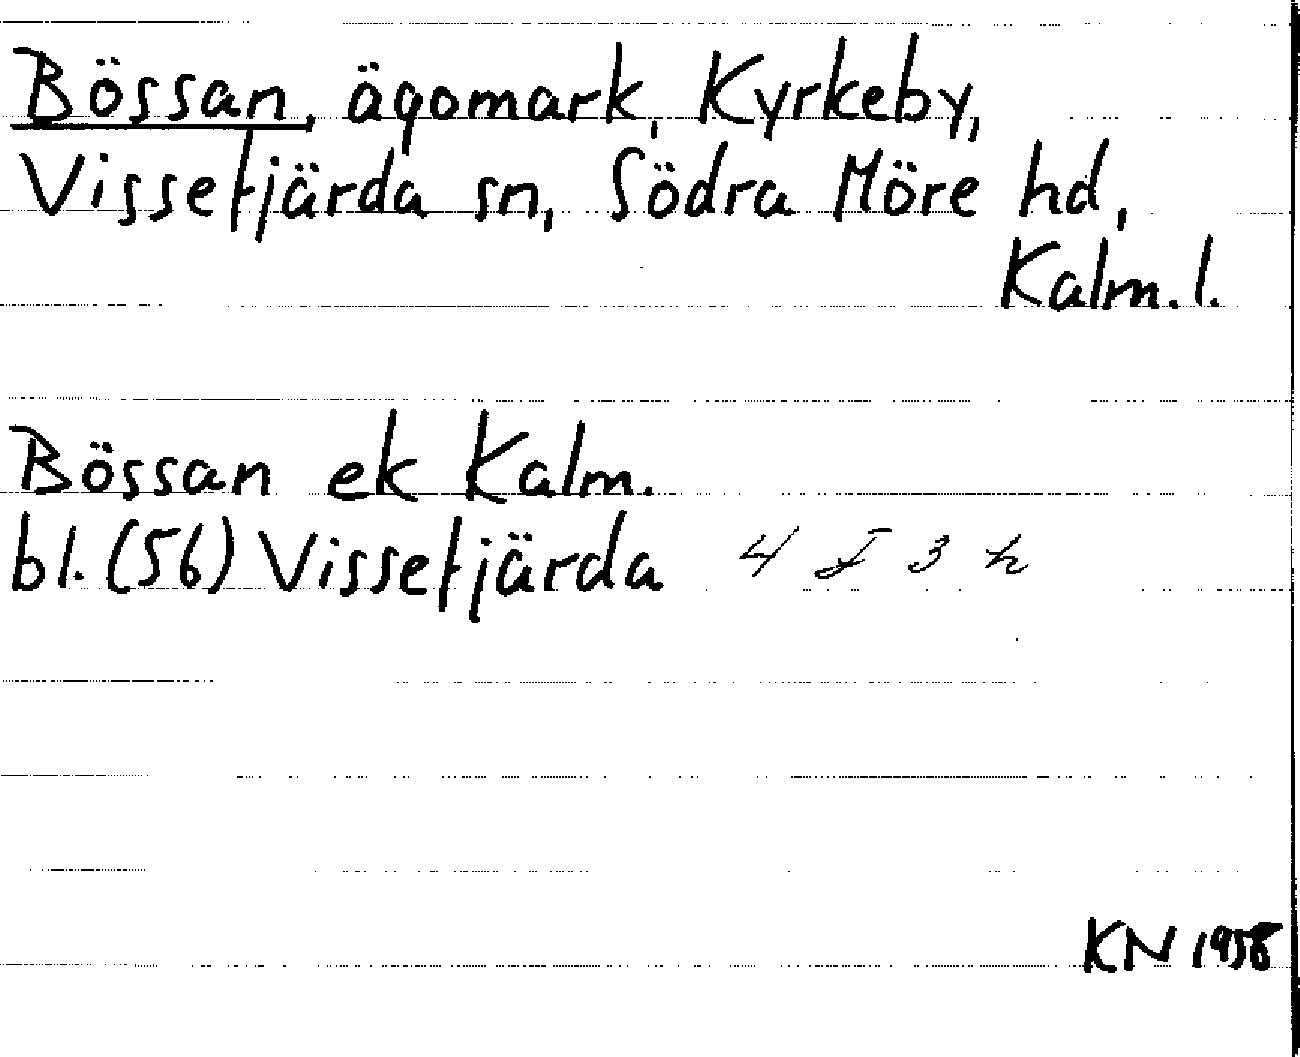 Bössan, ägomark, Kyrkeby,
Vissefjärda sn, Södra Möre hd,
Kalm. l.
Bössan ek Kalm.
bl. (56) Vissefjärda 4 F 3 h
KN 1958